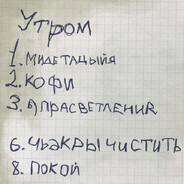 Утром
1. МИДЕТАЦЫЙЯ
2. КОФИ
3. ПРАСВЕТЛЕНИЯ
6. ЧЬАКРЫ ЧИСТИТЬ
8. ПОКОЙ